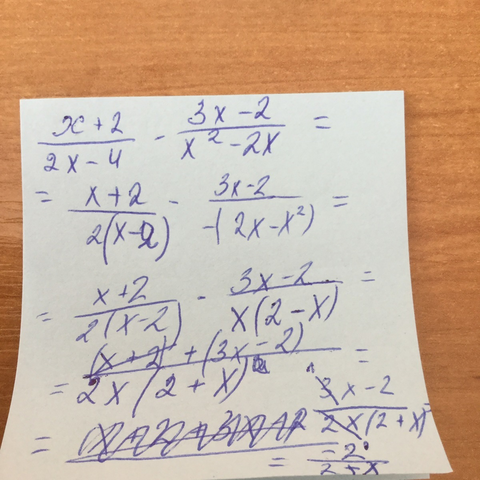 x+2/2x-4 - 3x-2/x²-2x =
= x+2/2(x-2) - 3x-2/-(2x-x²) =
= x+2/2(x-2) - 3x-2/x(2-x) =
= (x+2)+(3x-2)/2x(2+x) =
= 3x-2/2x(2+x) =
= -2/2+x